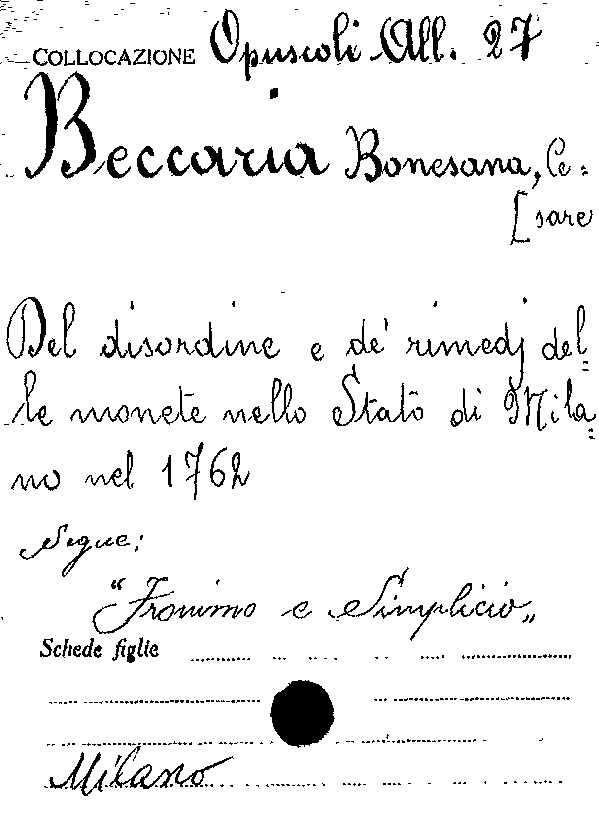 COLLOCAZIONE Opuscoli All. 27
Beccaria Bonesana, Ce=
[sare
Del disordine e de' rimedj del=
le monete nello Stato di Mila=
no nel 1762
Segue:
"Fronimo e Simplicio„
Schede figlie
Milano